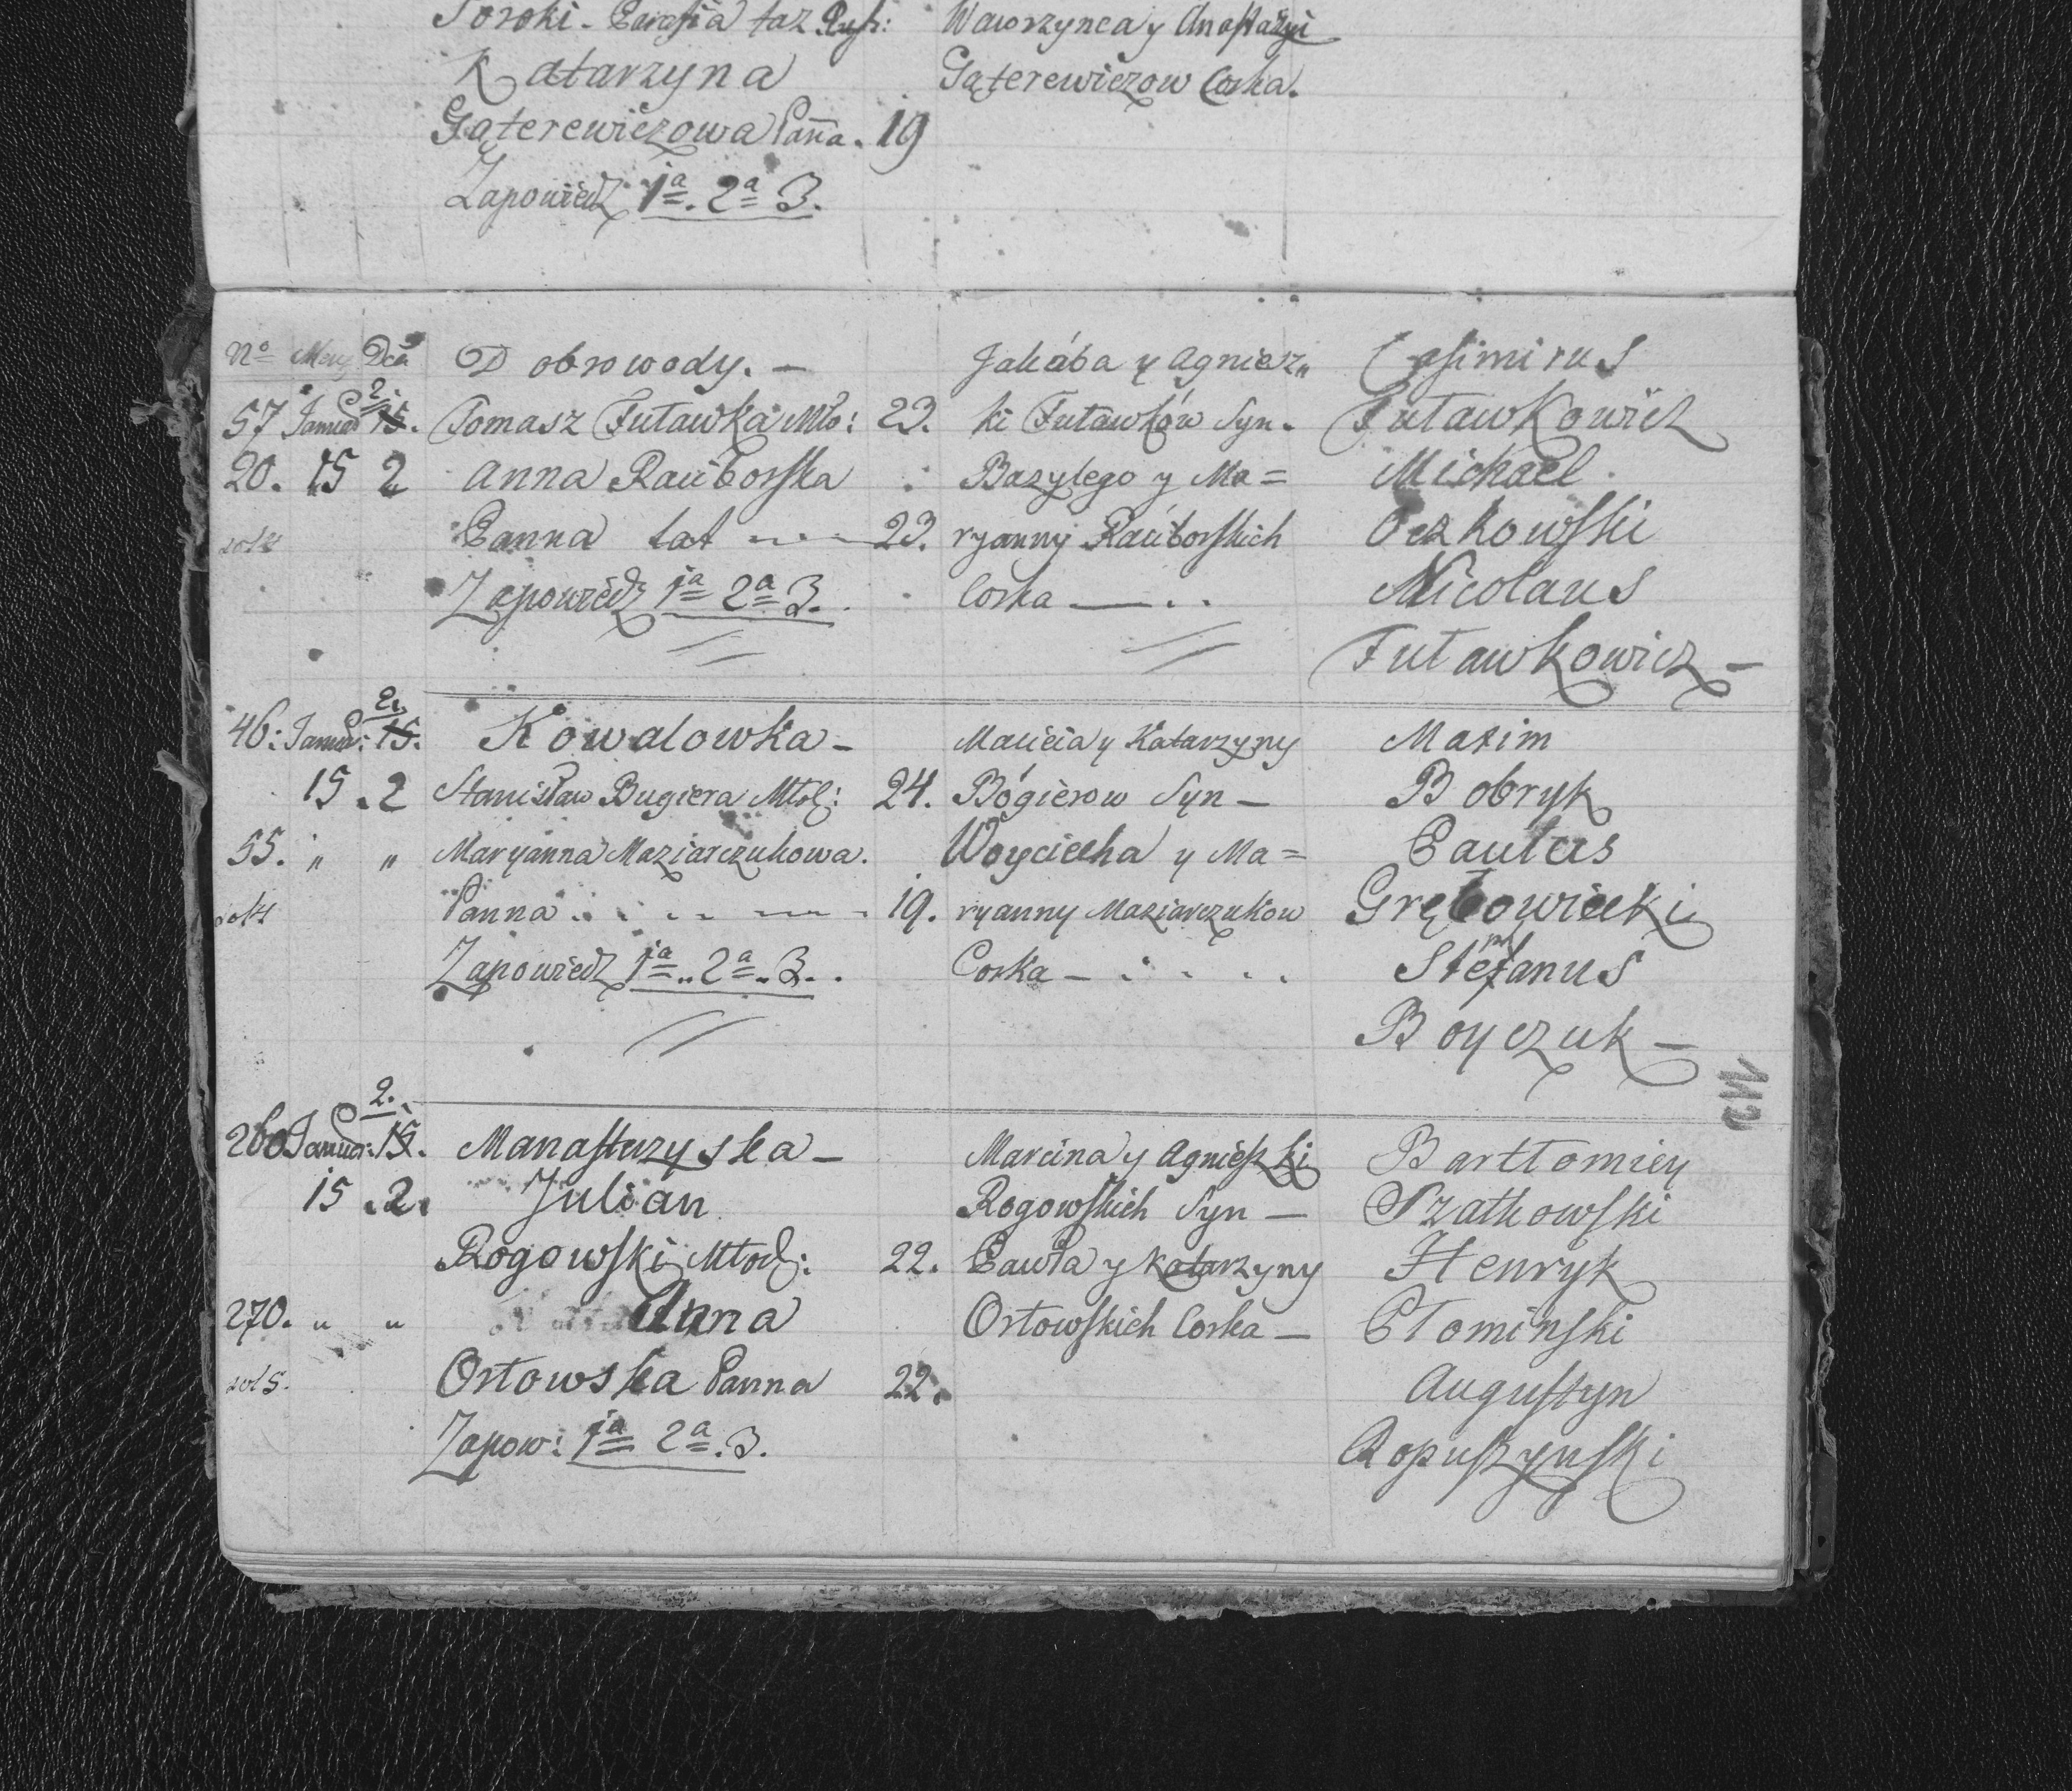 Soroki - Parafia taż
Wawrzynca y Anastazyi
Katarzyna
Gąterewiczow Corka.
Gąterewiczowa Pañа. 19
Zapowiedz 1a. 2a 3.
No Dca Dobrowody. — Jakóba y Agniesz„ Casimirus
57 Januar 2. 15. Tomasz Futawka Mło: 23. ki Futawków Syn. Futawkowicz
20. 15 2 Anna Raciborska Bazylego y Ma= Michael
Panna lat 23. ryanny Raciborskich Oczkowski
Zapowiedz 1a 2a 3. Corka — . . Nicolaus
Futawkowicz —
46: Januar: 2. 15. Kowalowka — Macieia y Katarzyny Maxim
15 . 2 Stanisław Bugiera Młod: 24. Bógierow Syn — Bobryk
55. „ „ Maryanna Maziarczukowa. Woyciecha y Ma= Paulus
Panna 19. ryanny Maziarczukow Grębowiecki
Zapowiedz 1a „ 2a „ 3. . Corka — Stefanus
Boyczuk —
260 Januar: 2. 15. Manasterzyska — Marcina y Agnieszki Bartłomiey
15 . 2. Julian Rogowskich Syn — Szatkowski
Rogowski Młod: 22. Pawła y Katarzyny Henryk
270. „ „ Anna Orłowskich Corka — Płominski
Orłowska Panna 22. Augustyn
Zapow: 1a 2a. 3. Ropuszynski